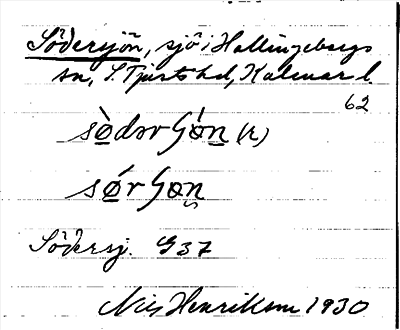 Södersjön, sjö i Hallingebergs
sn, S. Tjusts hd, Kalmar l.
62
sö̀dər ʃǿn (r)
sǿr ʃøn̥
Södersj. G37
Nils Henriksson 1930